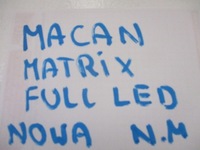 MACAN
MATRIX
FULL LED
NOWA N.M